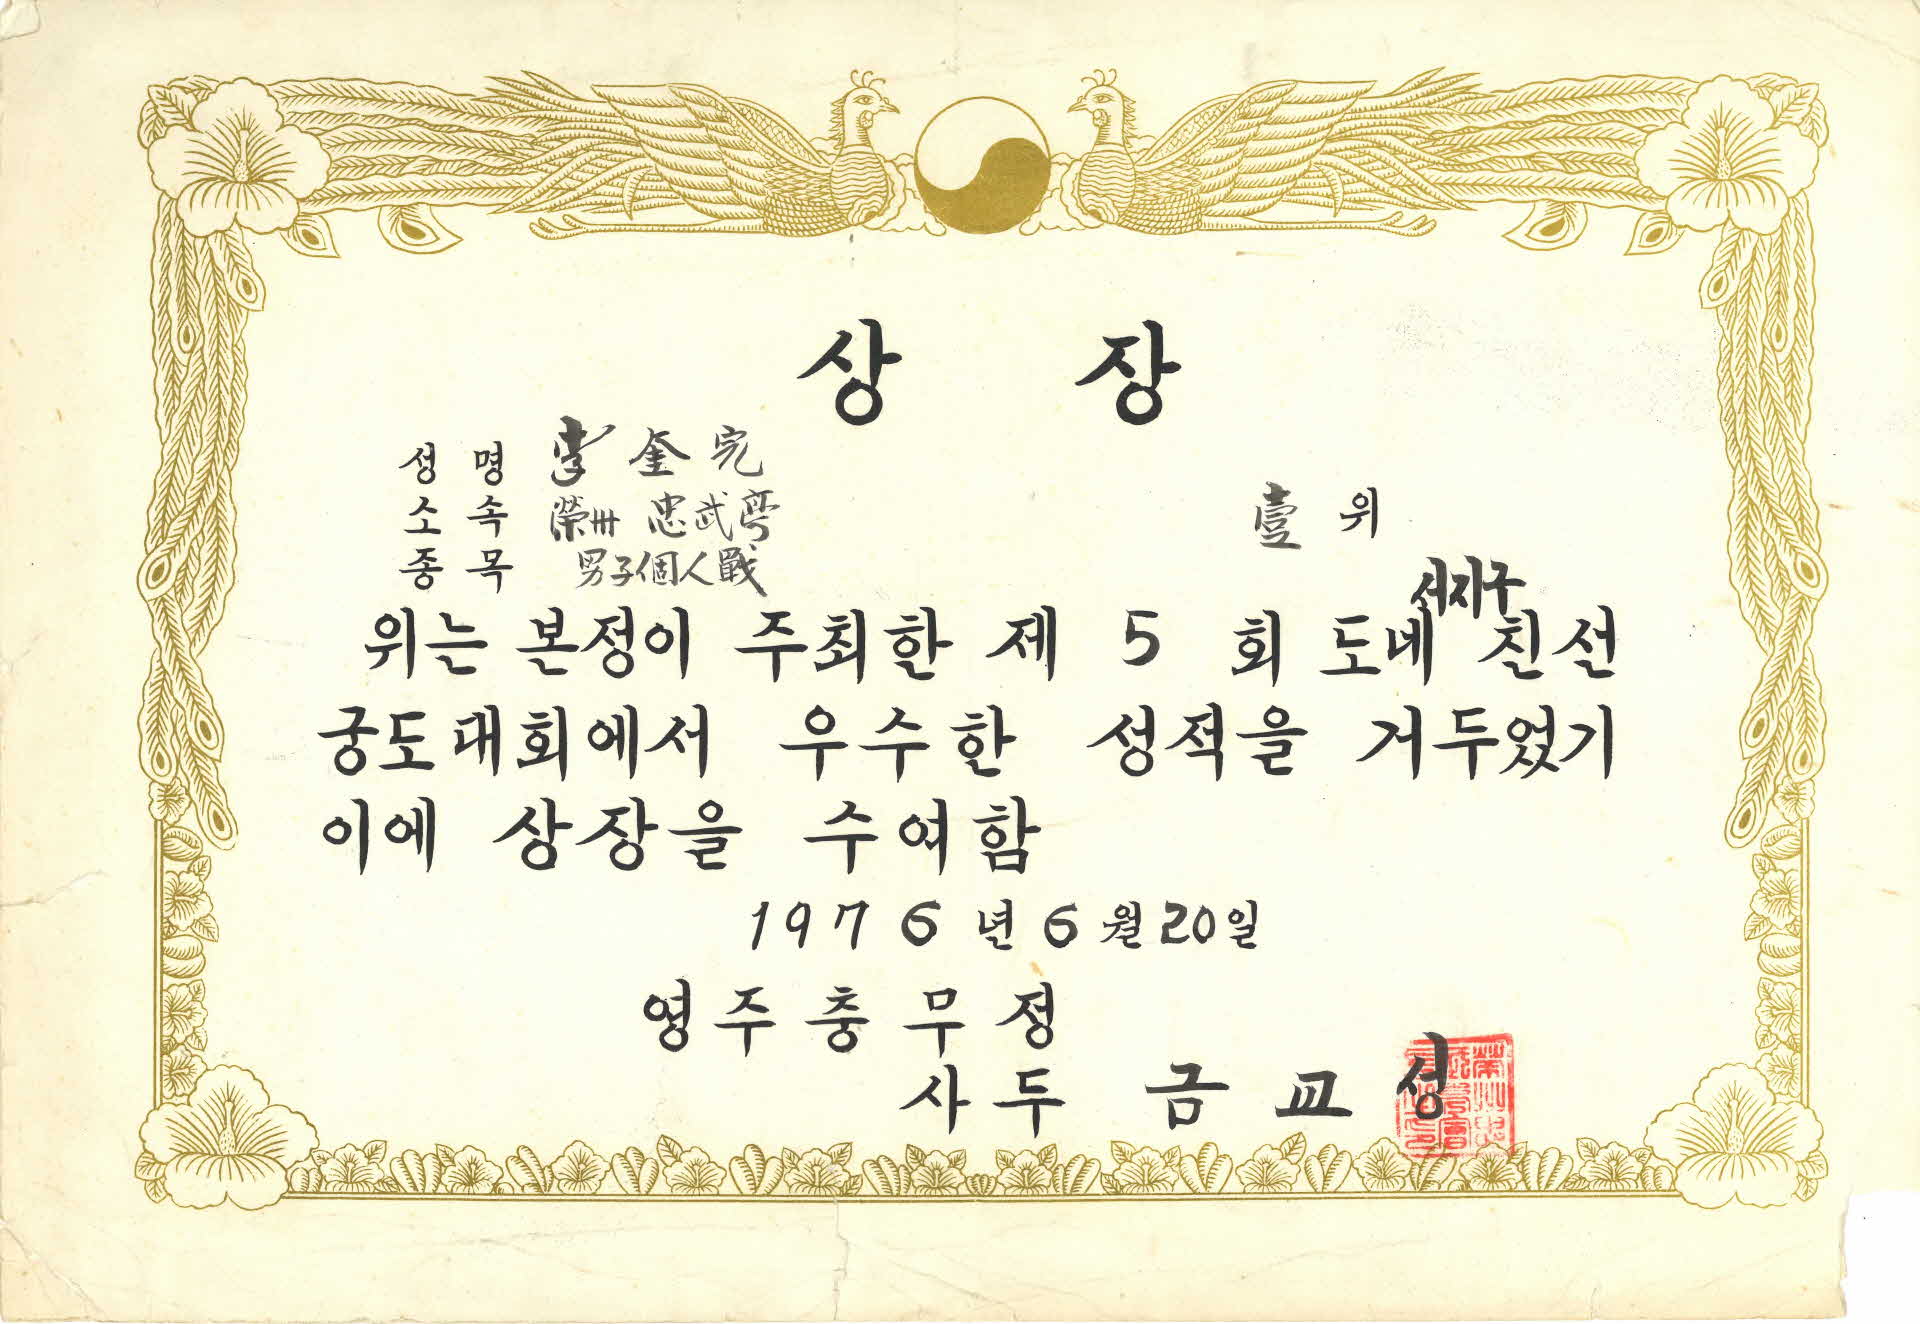 상 장
성 명 李 奎 完
소 속 榮州 忠武亭
종 목 男子個人戰
壹 위
서지구
위는 본정이 주최한 제 5 회 도네 친선
궁도대회에서 우수한 성적을 거두었기
이에 상장을 수여함
1976년 6월 20일
영주충무정
사두 금교성